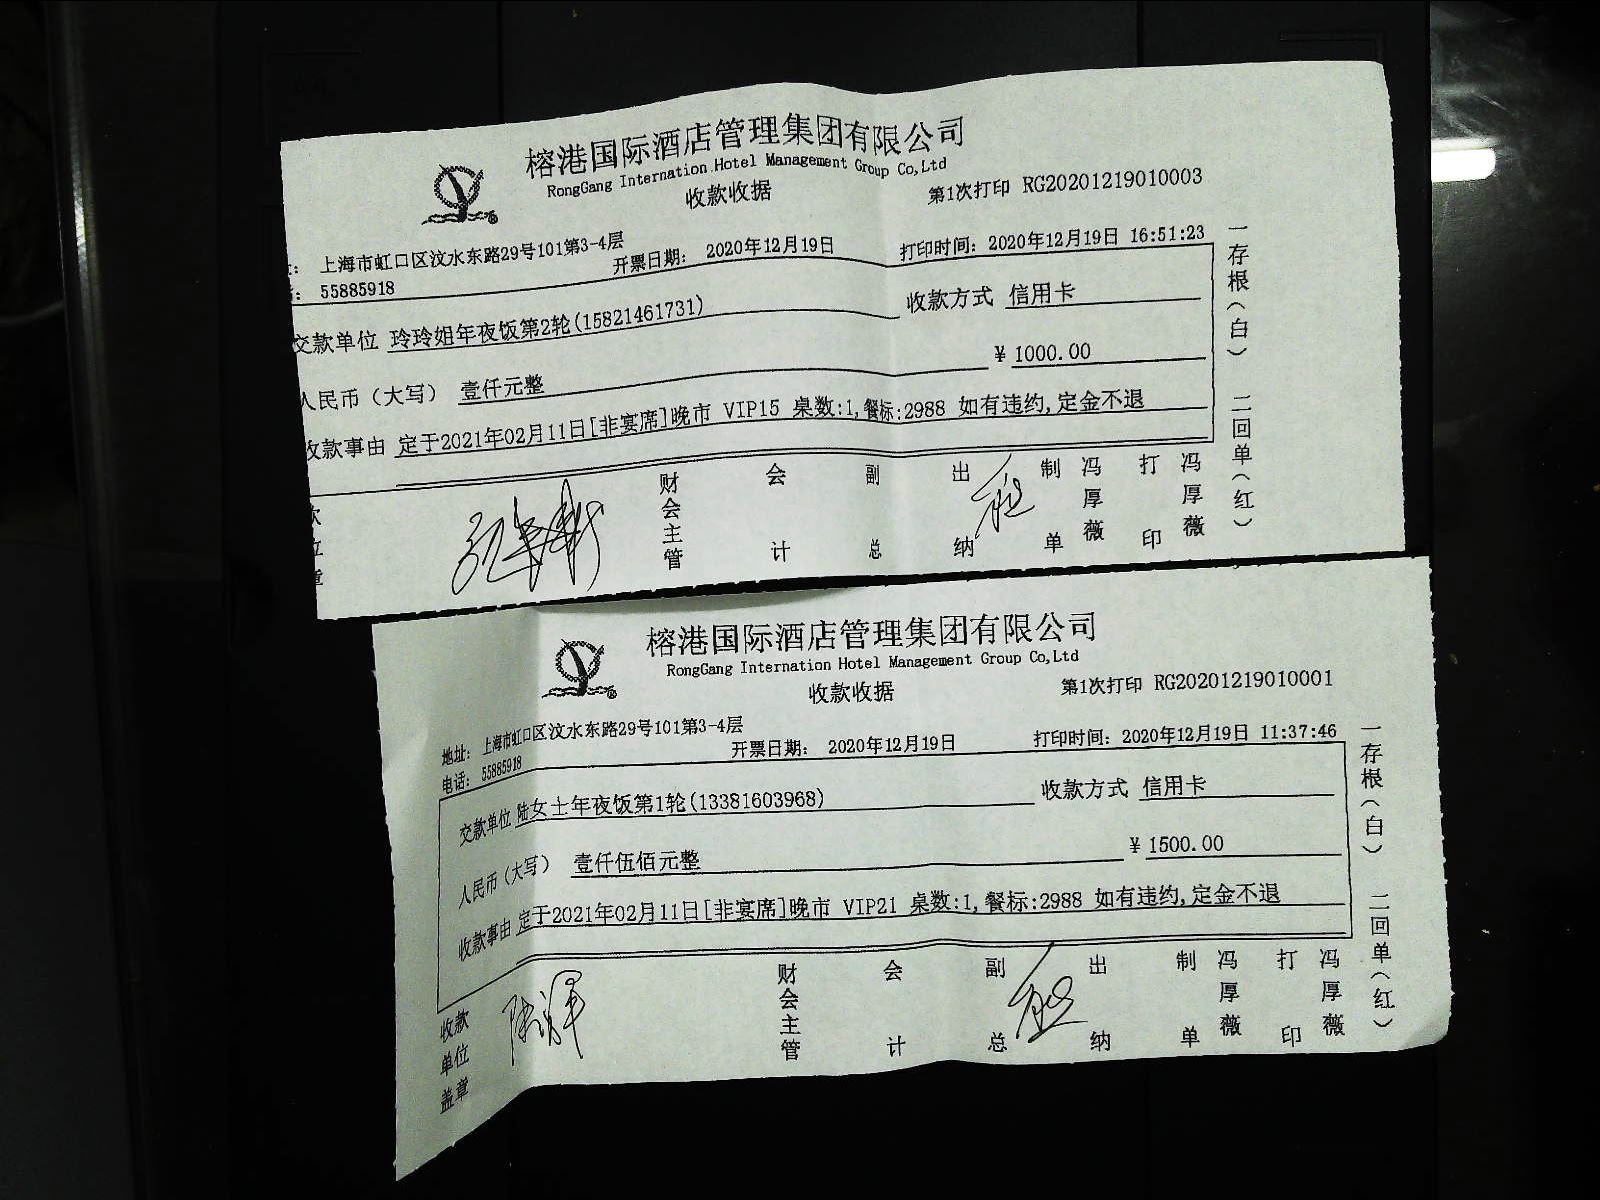 榕港国际酒店管理集团有限公司
RongGang Internation Hotel Management Group Co,Ltd
收款收据
第1次打印 RG20201219010003
: 上海市虹口区汶水东路29号101第3-4层
: 55885918
开票日期: 2020年12月19日
打印时间: 2020年12月19日 16:51:23
交款单位 玲玲姐年夜饭第2轮(15821461731)
收款方式 信用卡
人民币(大写) 壹仟元整
¥ 1000.00
收款事由 定于2021年02月11日[非宴席]晚市 VIP15 桌数:1,餐标:2988 如有违约,定金不退
财会主管
会计
副总
出纳
制单
冯厚薇
打印
冯厚薇
一存根(白) 二回单(红)
榕港国际酒店管理集团有限公司
RongGang Internation Hotel Management Group Co,Ltd
收款收据
第1次打印 RG20201219010001
地址: 上海市虹口区汶水东路29号101第3-4层
电话: 55885918
开票日期: 2020年12月19日
打印时间: 2020年12月19日 11:37:46
交款单位 陆女士年夜饭第1轮(13381603968)
收款方式 信用卡
人民币(大写) 壹仟伍佰元整
¥ 1500.00
收款事由 定于2021年02月11日[非宴席]晚市 VIP21 桌数:1,餐标:2988 如有违约,定金不退
收款单位盖章
财会主管
会计
副总
出纳
制单
冯厚薇
打印
冯厚薇
一存根(白) 二回单(红)